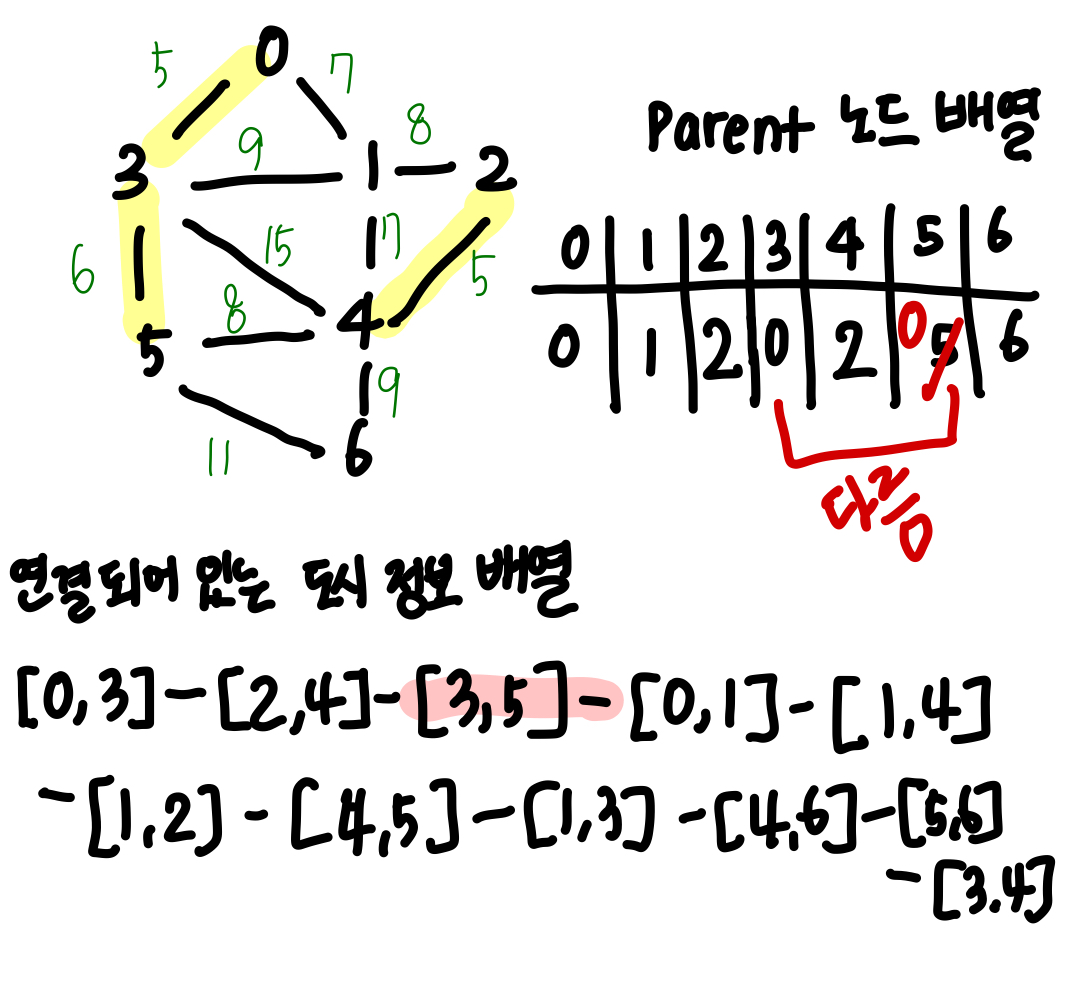 0
5
7
3
9
1
8
2
15
7
6
8
5
5
4
9
11
6
Parent 노드 배열
0 1 2 3 4 5 6
0 1 2 0 2 0 5 6
다름
0
연결되어 있는 도시 정보 배열
[0,3] - [2,4] - [3,5] - [0,1] - [1,4]
- [1,2] - [4,5] - [1,3] - [4,6] - [5,6]
- [3.4]